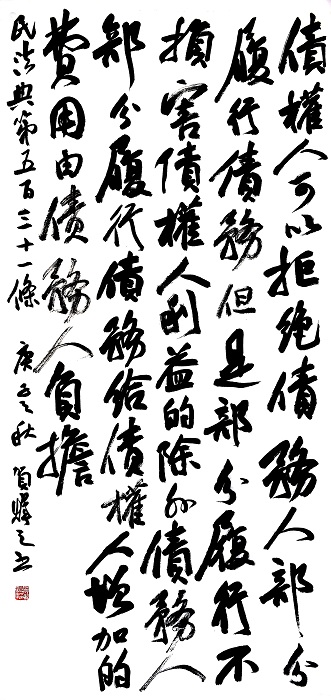 債權人可以拒绝債務人部分
履行債務但是部分履行不
損害債權人利益的除外債務人
部分履行債務給債權人增加的
費用由債務人負擔
民法典第五百三十一條 庚子秋 之书